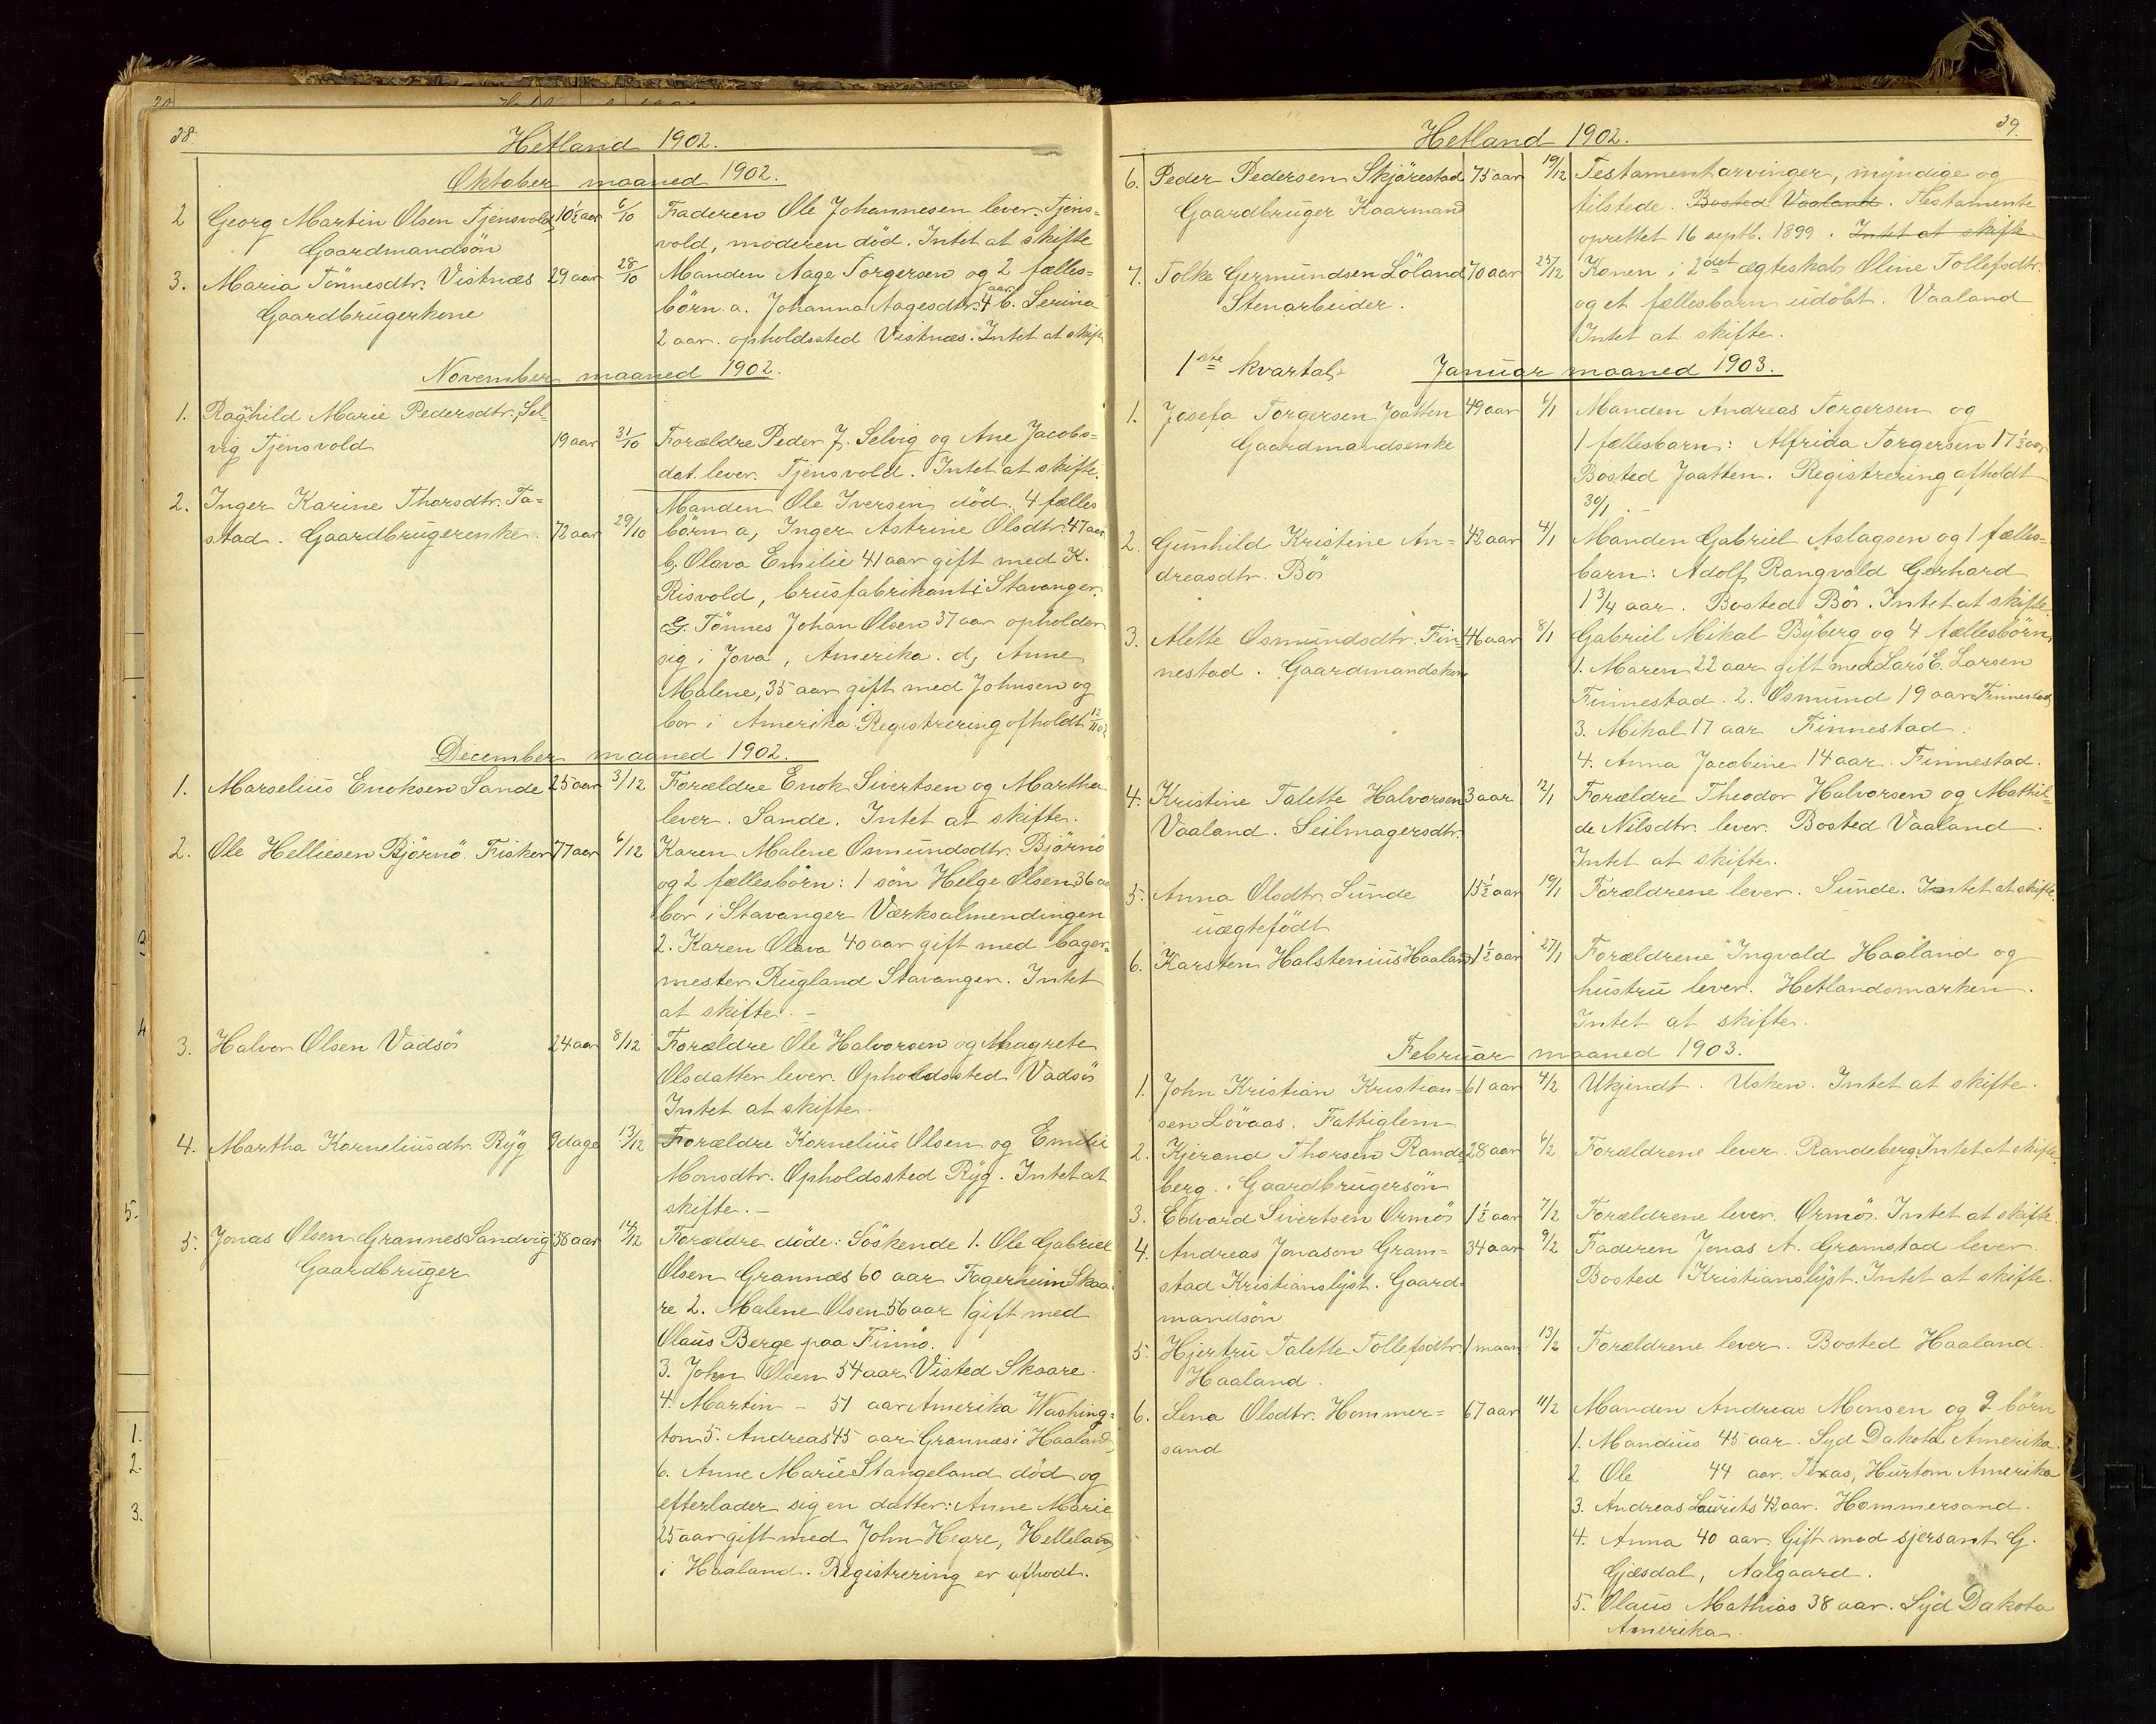 38.
Hetland 1902.
Oktober maaned 1902.
2 Georg Martin Olsen Tjensvold 10½ aar 6/10 Faderen Ole Johannesen lever. Tjens-
Gaardmandsön vold, moderen död. Intet at skifte
3. Maria Tönnesdtr. Vistnæs 29 aar 28/10 Manden Aage Torgersen og 2 fælles-
Gaardbrugerkone börn. a. Johanna Aagesdtr. 4 aar b. Serina
2 aar. opholdssted Vistnæs. Intet at skifte
November maaned 1902.
1. Ragnhild Marie Pedersdtr. Sel-
vig Tjensvold 19 aar 31/10 Forældre Peder J. Selvig og Ane Jacobs-
dat. lever. Tjensvold. Intet at skifte.
2. Inger Karine Thorsdtr. Ta- Manden Ole Iversen död. 4 fælles
stad. Gaardbrugerenke. 72 aar 29/10 börn a, Inger Astrine Olsdtr. 47 aar
b, Olava Emilie 41 aar gift med K.
Risvold, brusfabrikant i Stavanger.
c. Tönnes Johan Olsen 37 aar opholder
sig i Jova, Amerika. d, Anne
Malene, 35 aar gift med Johnsen og
bor i Amerika. Registrering afholdt 12/11 02
December maaned 1902.
1. Marselius Enoksen Sande 25 aar 3/12 Forældre Enok Sivertsen og Martha
lever. Sande. Intet at skifte.
2. Ole Helliesen Björnö. Fisker 77 aar 6/12 Karen Malene Osmundsdtr. Björnö
og 2 fællesbörn: 1 sön Helge Olsen 36 aar
bor i Stavanger Værksalmendingen
2. Karen Olava 40 aar gift med bager-
mester Rugland Stavanger. Intet
at skifte. -
3. Halvor Olsen Vadsö 24 aar 8/12 Forældre Ole Halvorsen og Magrete
Olsdatter lever. Opholdssted Vadsö
Intet at skifte.
4. Martha Korneliusdtr. Ryg 9 dage 13/12 Forældre Kornelius Olsen og Emilie
Monsdtr. Opholdssted Ryg. Intet at
skifte. -
5. Jonas Olsen Grannes Sandvig 58 aar 14/12 Forældre döde: Söskende 1. Ole Gabriel
Gaardbruger Olsen Grannæs 60 aar Fagerheim Skaa-
re 2. Malene Olsen 56 aar gift med
Olaus Berge paa Finnö.
3. John Olsen 54 aar Visted Skaare.
4. Martin - 51 aar Amerika Washing-
ton 5. Andreas 45 aar Grannæs i Haaland
6. Anne Marie Stangeland död og
efterlader sig en datter: Anne Marie
25 aar gift med John Hegre, Helleland
i Haaland. Registrering er afhodt.
39.
Hetland 1902.
6. Peder Pedersen Skjörestad 75 aar 19/12 Testamentarvinger, myndige og
Gaardbruger Kaarmand tilstede. Bosted Vaaland. Testamente
oprettet 16 septb. 1899. Intet at skifte
7. Tolke Germundsen Löland 70 aar 25/12 Konen i 2det ægteskab Oline Tollefsdtr.
Stenarbeider. og et fællesbarn udöbt. Vaaland
Intet at skifte.
1ste kvartal. Januar maaned 1903.
1. Josefa Torgersen Jaatten 49 aar 6/1 Manden Andreas Torgersen og
Gaardmandsenke 1 fællesbarn: Alfrida Torgersen 17½ aar
Bosted Jaatten. Registrering afholdt
30/1 -
2. Gunhild Kristine An- 42 aar 4/1 Manden Gabriel Aslagsen og 1 fælles-
dreasdtr. Bö barn: Adolf Rangvald Gerhard
1 3/4 aar. Bosted Bö. Intet at skifte.
3. Alette Osmundsdtr. Fin- 46 aar 8/1 Gabriel Mikal Byberg og 4 fællesbörn,
nestad. Gaardmandskone 1. Maren 22 aar gift med Lars E. Larsen
Finnestad. 2. Osmund 19 aar Finnestad
3. Mikal 17 aar Finnestad.
4. Anna Jacobine 14 aar. Finnestad.
4. Kristine Talette Halvorsen 3 aar 12/1 Forældre Theodor Halvorsen og Mathil-
Vaaland. Seilmagersdtr. de Nilsdtr. lever. Bosted Vaaland.
Intet at skifte.
5. Anna Olsdtr. Sunde 15½ aar 19/1 Forældrene lever. Sunde. Intet at skifte.
uægtefödt
6. Karsten Halstenius Haaland 1½ aar 27/1 Forældrene Ingvald Haaland og
hustru lever. Hetlandsmarken.
Intet at skifte.
Februar maaned 1903.
1. John Kristian Kristian- 61 aar 4/2 Ukjendt. Usken. Intet at skifte.
sen Lövaas. Fattiglem
2. Kjerand Thorsen Rande- 28 aar 6/2 Forældrene lever. Randeberg. Intet at skifte.
berg. Gaardbrugersön
3. Edvard Sivertsen Ormö 1½ aar 7/2 Forældrene lever. Ormö. Intet at skifte.
4. Andreas Jonason Gram- 34 aar 9/2 Faderen Jonas A. Gramstad lever.
stad Kristianslyst. Gaard- Bosted Kristianslyst. Intet at skifte.
mandsön
5. Hjertru Talette Tollefsdtr. 1 maan. 13/2 Forældrene lever. Bosted Haaland.
Haaland.
6. Lena Olsdtr. Hommer- 67 aar 11/2 Manden Andreas Monsen og 9 börn
sand 1. Mandius 45 aar. Syd Dakota Amerika.
2 Ole 44 aar. Texas, Hurtom Amerika
3. Andreas Laurits 42 aar. Hommersand.
4. Anna 40 aar. Gift med sjersant G.
Gjæsdal, Aalgaard.
5. Olaus Mathias 38 aar. Syd Dakota
Amerika.